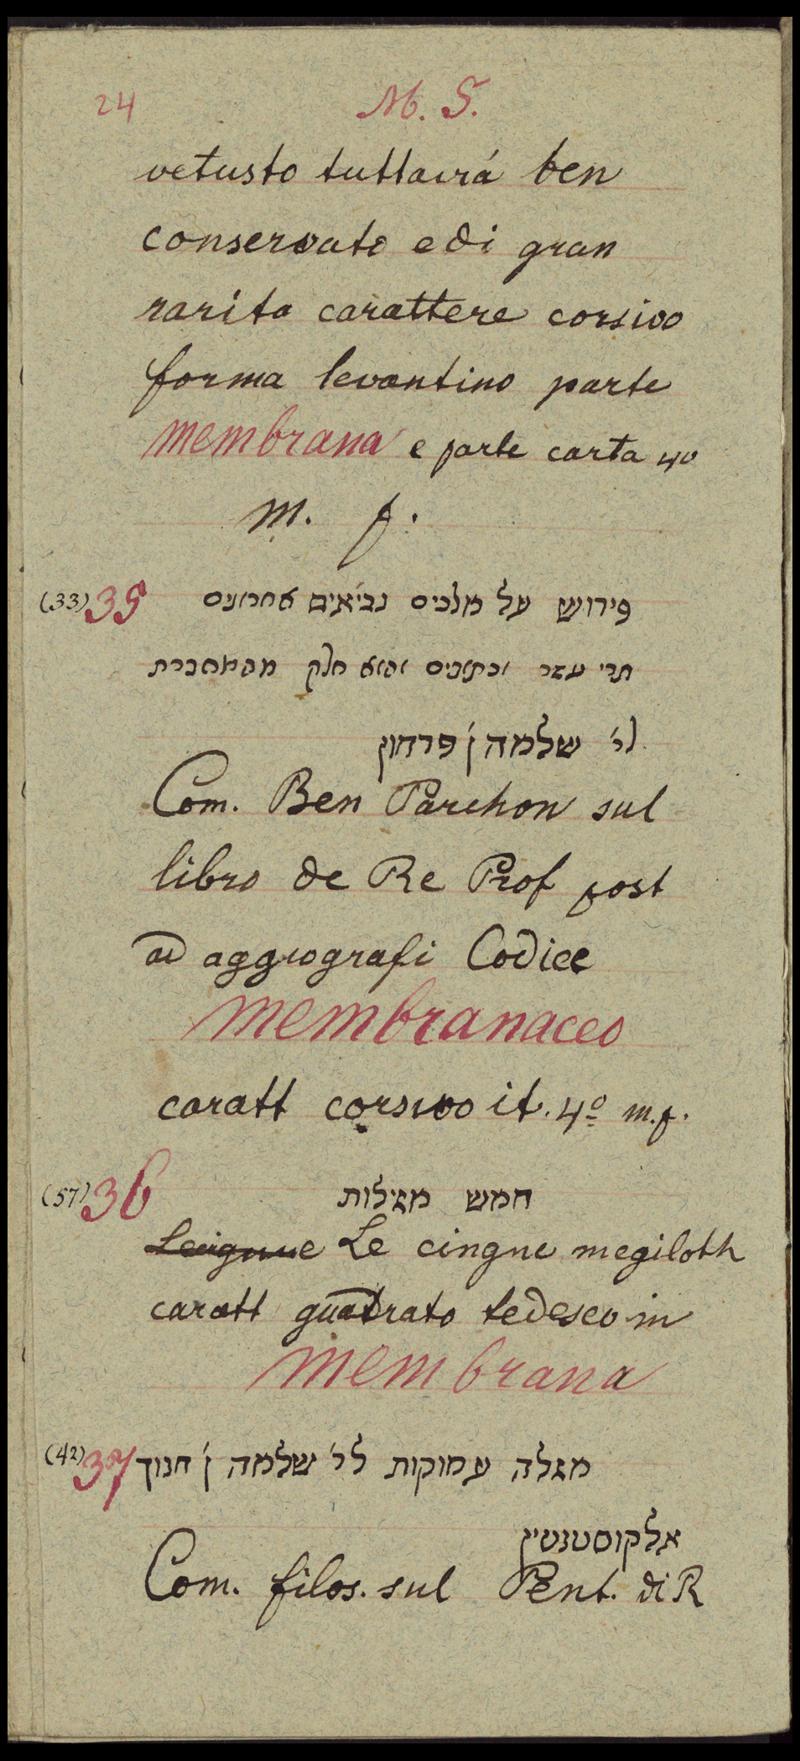 24 M. S.
vetusto tuttaviá ben
conservato e di gran
rarita carattere corsivo
forma levantino parte
membrana e parte carta 4º
m. f.
(33) 35 פירוש על מלכים נביאים אחרונים
תרי עשר וכתובים והוא חלק מהמחברת
לר׳ שלמה ן׳ פרחון
Com. Ben Parchon sul
libro de Re Prof post
ad aggiografi Codice
membranaceo
caratt corsivo it. 4º m.f.
(57) 36 חמש מגילות
Le cingue megiloth
caratt guadrato tedesco in
membrana
(42) 37 מגלה עמוקות לר׳ שלמה ן׳ חנוך
אלקוסטנטין
Com. filos. sul Pent. di R